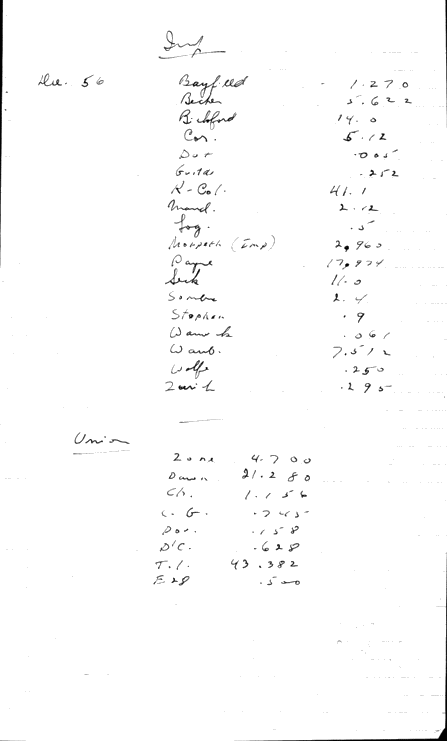 Imp
Dec. 56
Bayfield 1.270
Becher 5.622
Bickford 14.0
Cor. 5.12
Dor .005
Guitar .252
K-Col. 41.1
Mand. 2.12
.5
Monpeth (Imp) 2.960
Payne 17.974
Seck 11.0
Sombra 2.4
Stephen .9
.061
Waub. 7.512
Wolfe .250
Zurich .295
Union
Zone 4.700
Dawn 21.280
Ch. 1.156
C.G. .745
Dor. .158
D'C. .628
T.I. 43.382
E 28 .500